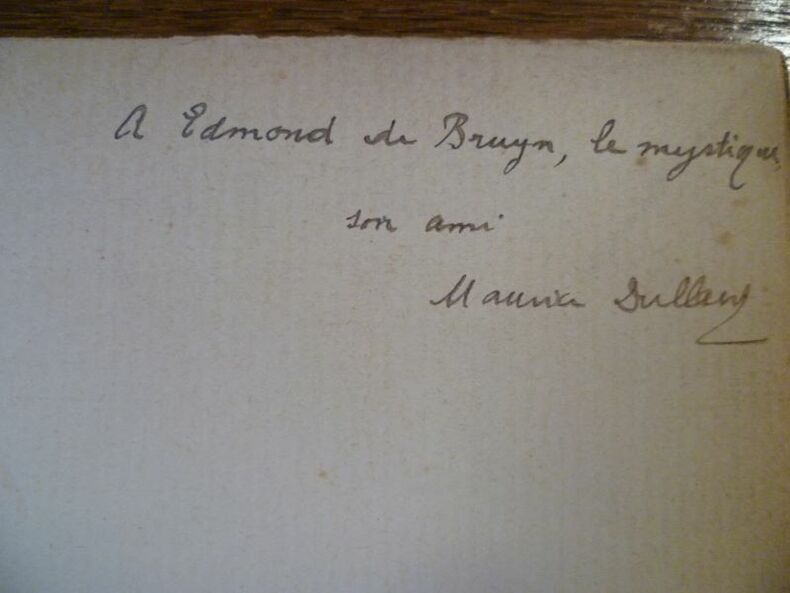 A Edmond de Bruyn, le mystique,
son ami
Maurice Dullaert